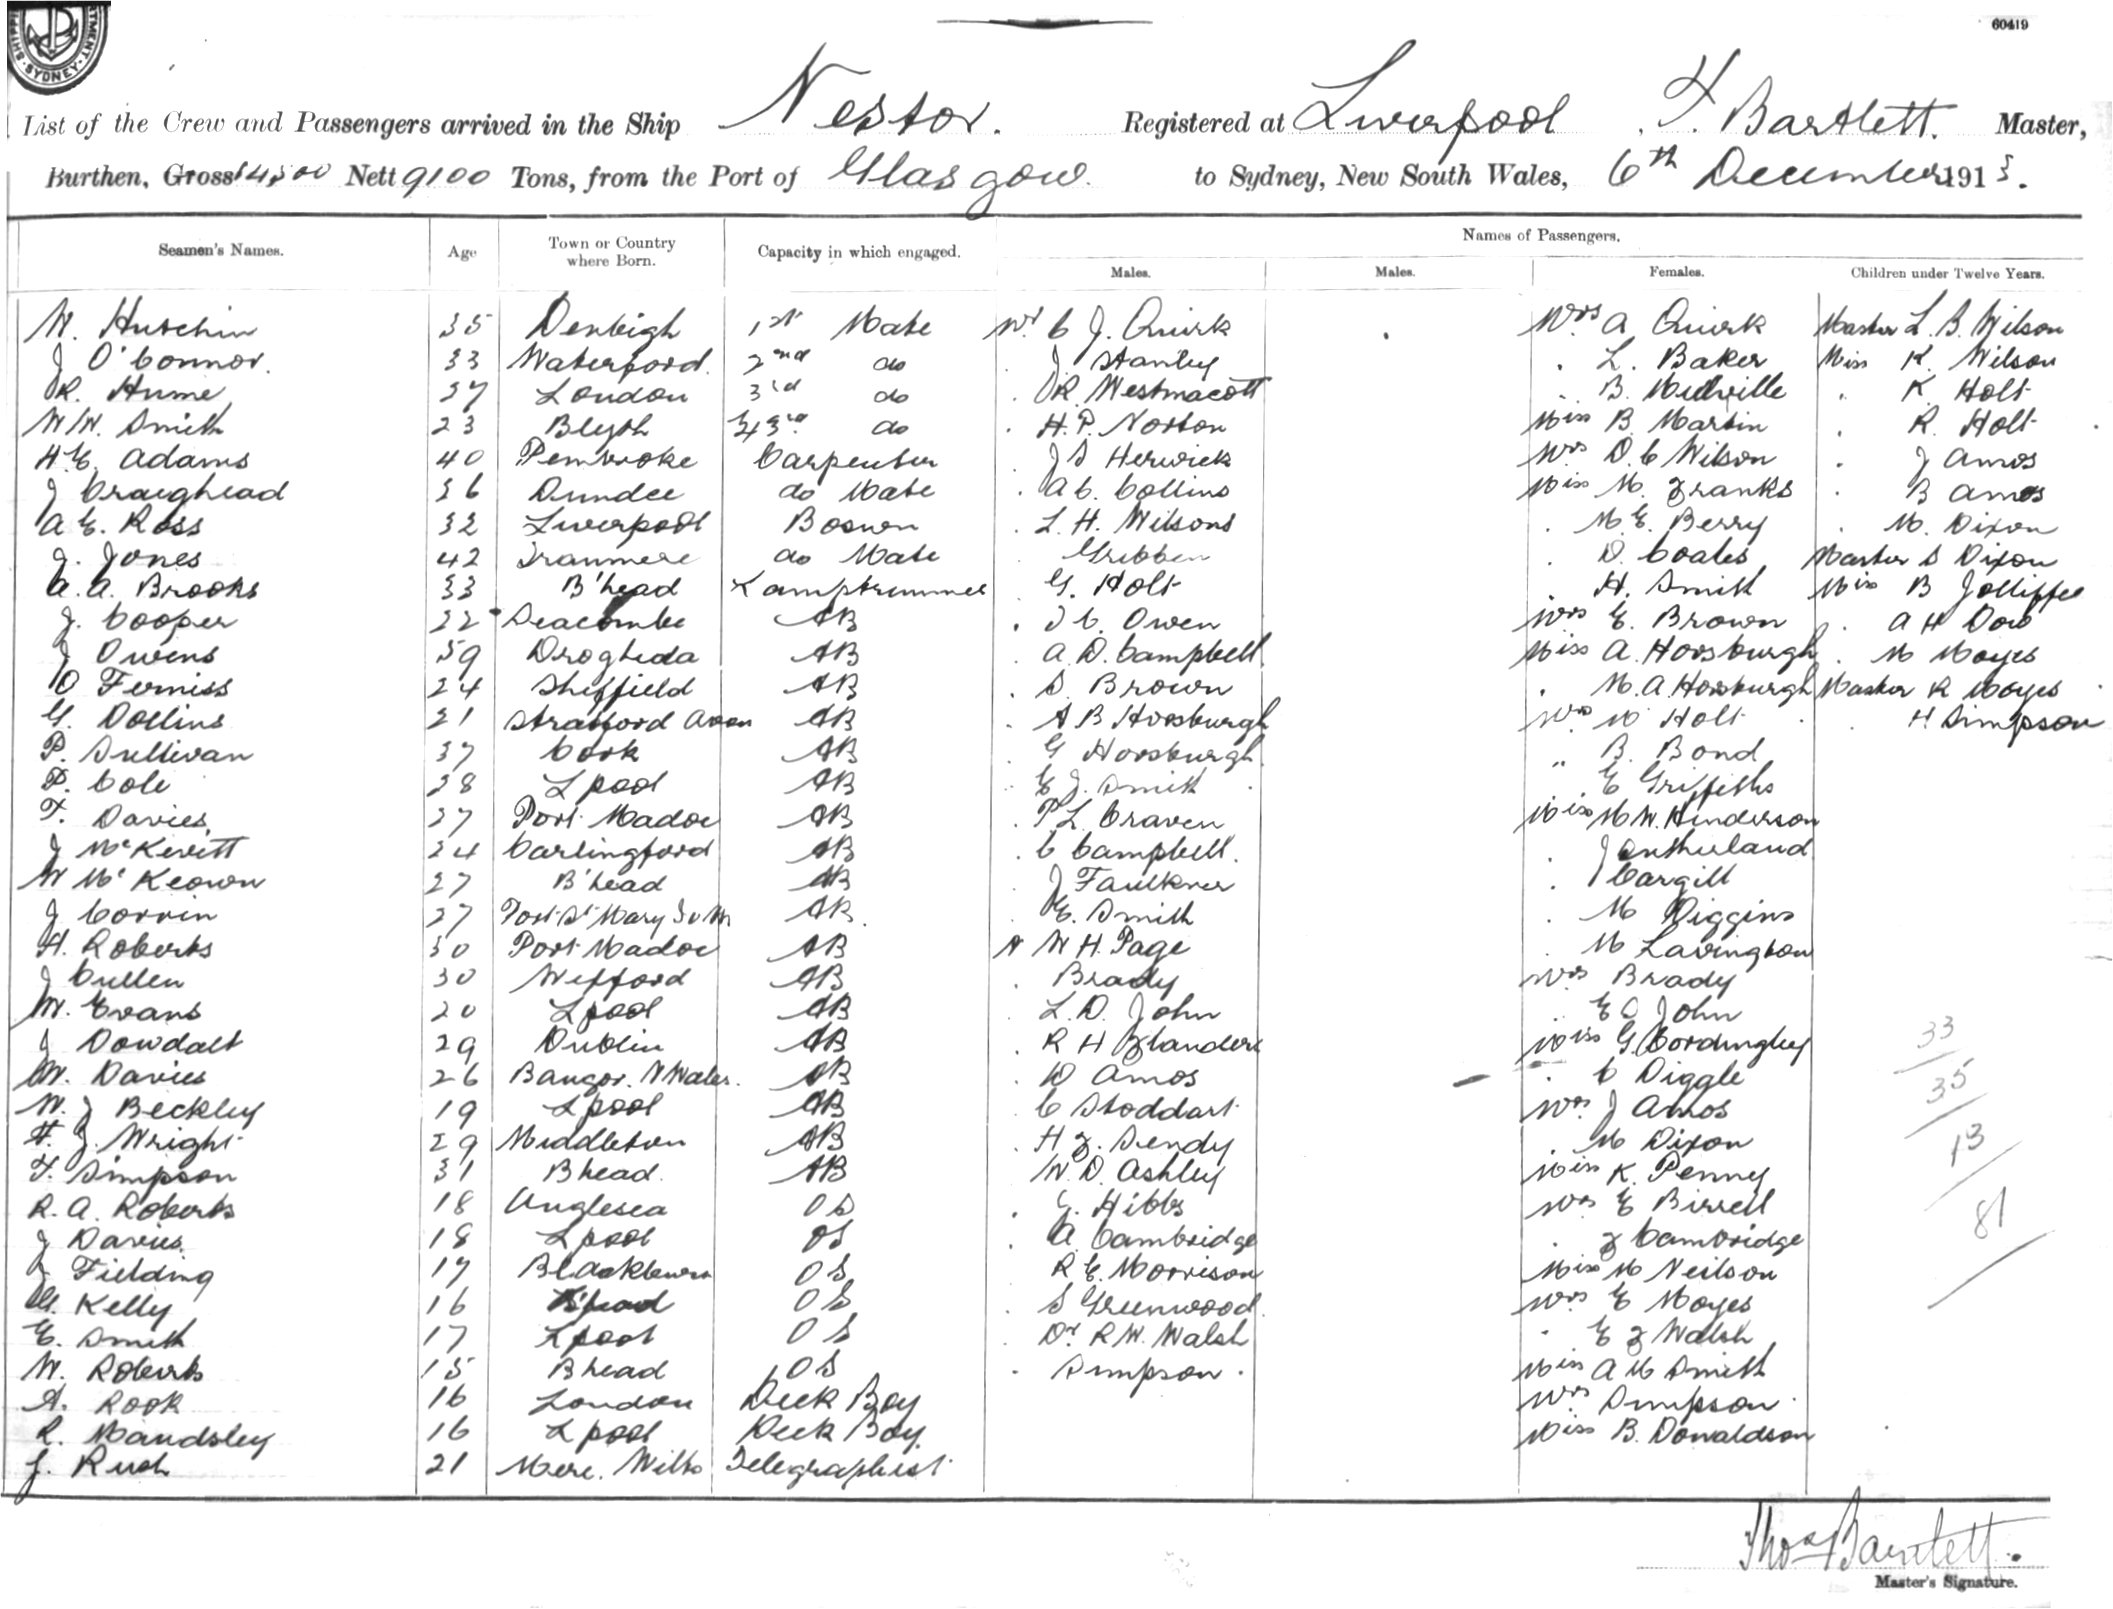 60419
SYDNEY
List of the Crew and Passengers arrived in the Ship Nestor. Registered at Liverpool T. Bartlett. Master,
Burthen, Gross 14500 Nett 9100 Tons, from the Port of Glasgow. to Sydney, New South Wales, 6th December 1913.
Names of Passengers.
Seamen's Names. Age Town or Country where Born. Capacity in which engaged. Males. Males. Females. Children under Twelve Years.
W. Hutchin 35 Denbigh 1st Mate Mr C J. Quirk Mrs A Quirk Master L. B. Wilson
J O'Connor. 33 Waterford. 2nd do J Stanley L. Baker Miss K. Wilson
R. Hume 37 London 3rd do R. Westmacott B. K Holt
W W. Smith 23 Blyth do H. P. Norton Miss B. Martin R. Holt
H. E. Adams 40 Pembroke Carpenter J S Herwick Mrs D. C Wilson J Amos
J Craighead 36 Dundee do Mate A C. Collins Miss M. Franks B Amos
A E. Ross 32 Liverpool Bosun L. H. Wilsons M. E. Berry M. Dixon
J. Jones 42 Tranmere do Mate Gribben D. Coates Master S Dixon
A. A. Brooks 33 B'head Lamptrimmer G. Holt H. Smith Miss B Jolliffee
J. Cooper 22 Seacombe AB J C. Owen Mrs E. Brown A H Dow
J Owens 59 Drogheda AB A. D. Campbell Miss A. Horsburgh M Moyes
O Ferniss 24 Sheffield AB S. Brown M. A Horsburgh Master R Moyes
G. Dollins 21 Stratford Avon AB A B Horsburgh Mrs M Holt H. Simpson
P. Sullivan 37 Cork AB G Horsburgh " B. Bond
P. Cole 28 L pool AB E J. Smith E Griffiths
T. Davies 27 Port Madoc AB P L. Craven Miss M W. Henderson
J McKevitt 24 Carlingford AB C Campbell. J Sutherland
W McKeown 27 B'head AB J Faulkner J Cargill
J Corrin 27 Port St Mary I o M AB E. Smith M Diggins
H. Roberts 30 Port Madoc AB W H. Page M Lavington
J Cullen 30 Wexford AB Brady Mrs Brady
W. Evans 20 L pool AB L. D. John E D John
J Dowdall 29 Dublin AB R H Flanders Miss G. Cordingley 33
W. Davies 26 Bangor. N Wales. AB W Amos C Diggle 35
W. J Beckley 19 L pool AB C Stoddart Mrs J Amos
F. J. Wright 29 Middleton AB H F. Sendy M Dixon 13
T. Simpson 31 B head. AB W. D. Ashley Miss K. Penny
R. A. Roberts 18 Anglesea O S G. Hibbs Mrs E Birrell 81
J Davies. 18 L pool OS A Cambridge F Cambridge
J Fielding 17 Blackburn O S R E. Morrison Miss M Neilson
G. Kelly 16 O S S Greenwood. Mrs E Moyes
E. Smith 17 L pool O S Dr R W. Walsh E F Walsh
W. Roberts 15 B head O S Simpson. Miss A M Smith
A. Rook 16 London Deck Boy Mrs Simpson
R. Mandsley 16 L pool Deck Boy. Miss B. Donaldson
J. Rush 21 Mere. Wilts Telegraphist.
Thos Bartlett.
Master's Signature.